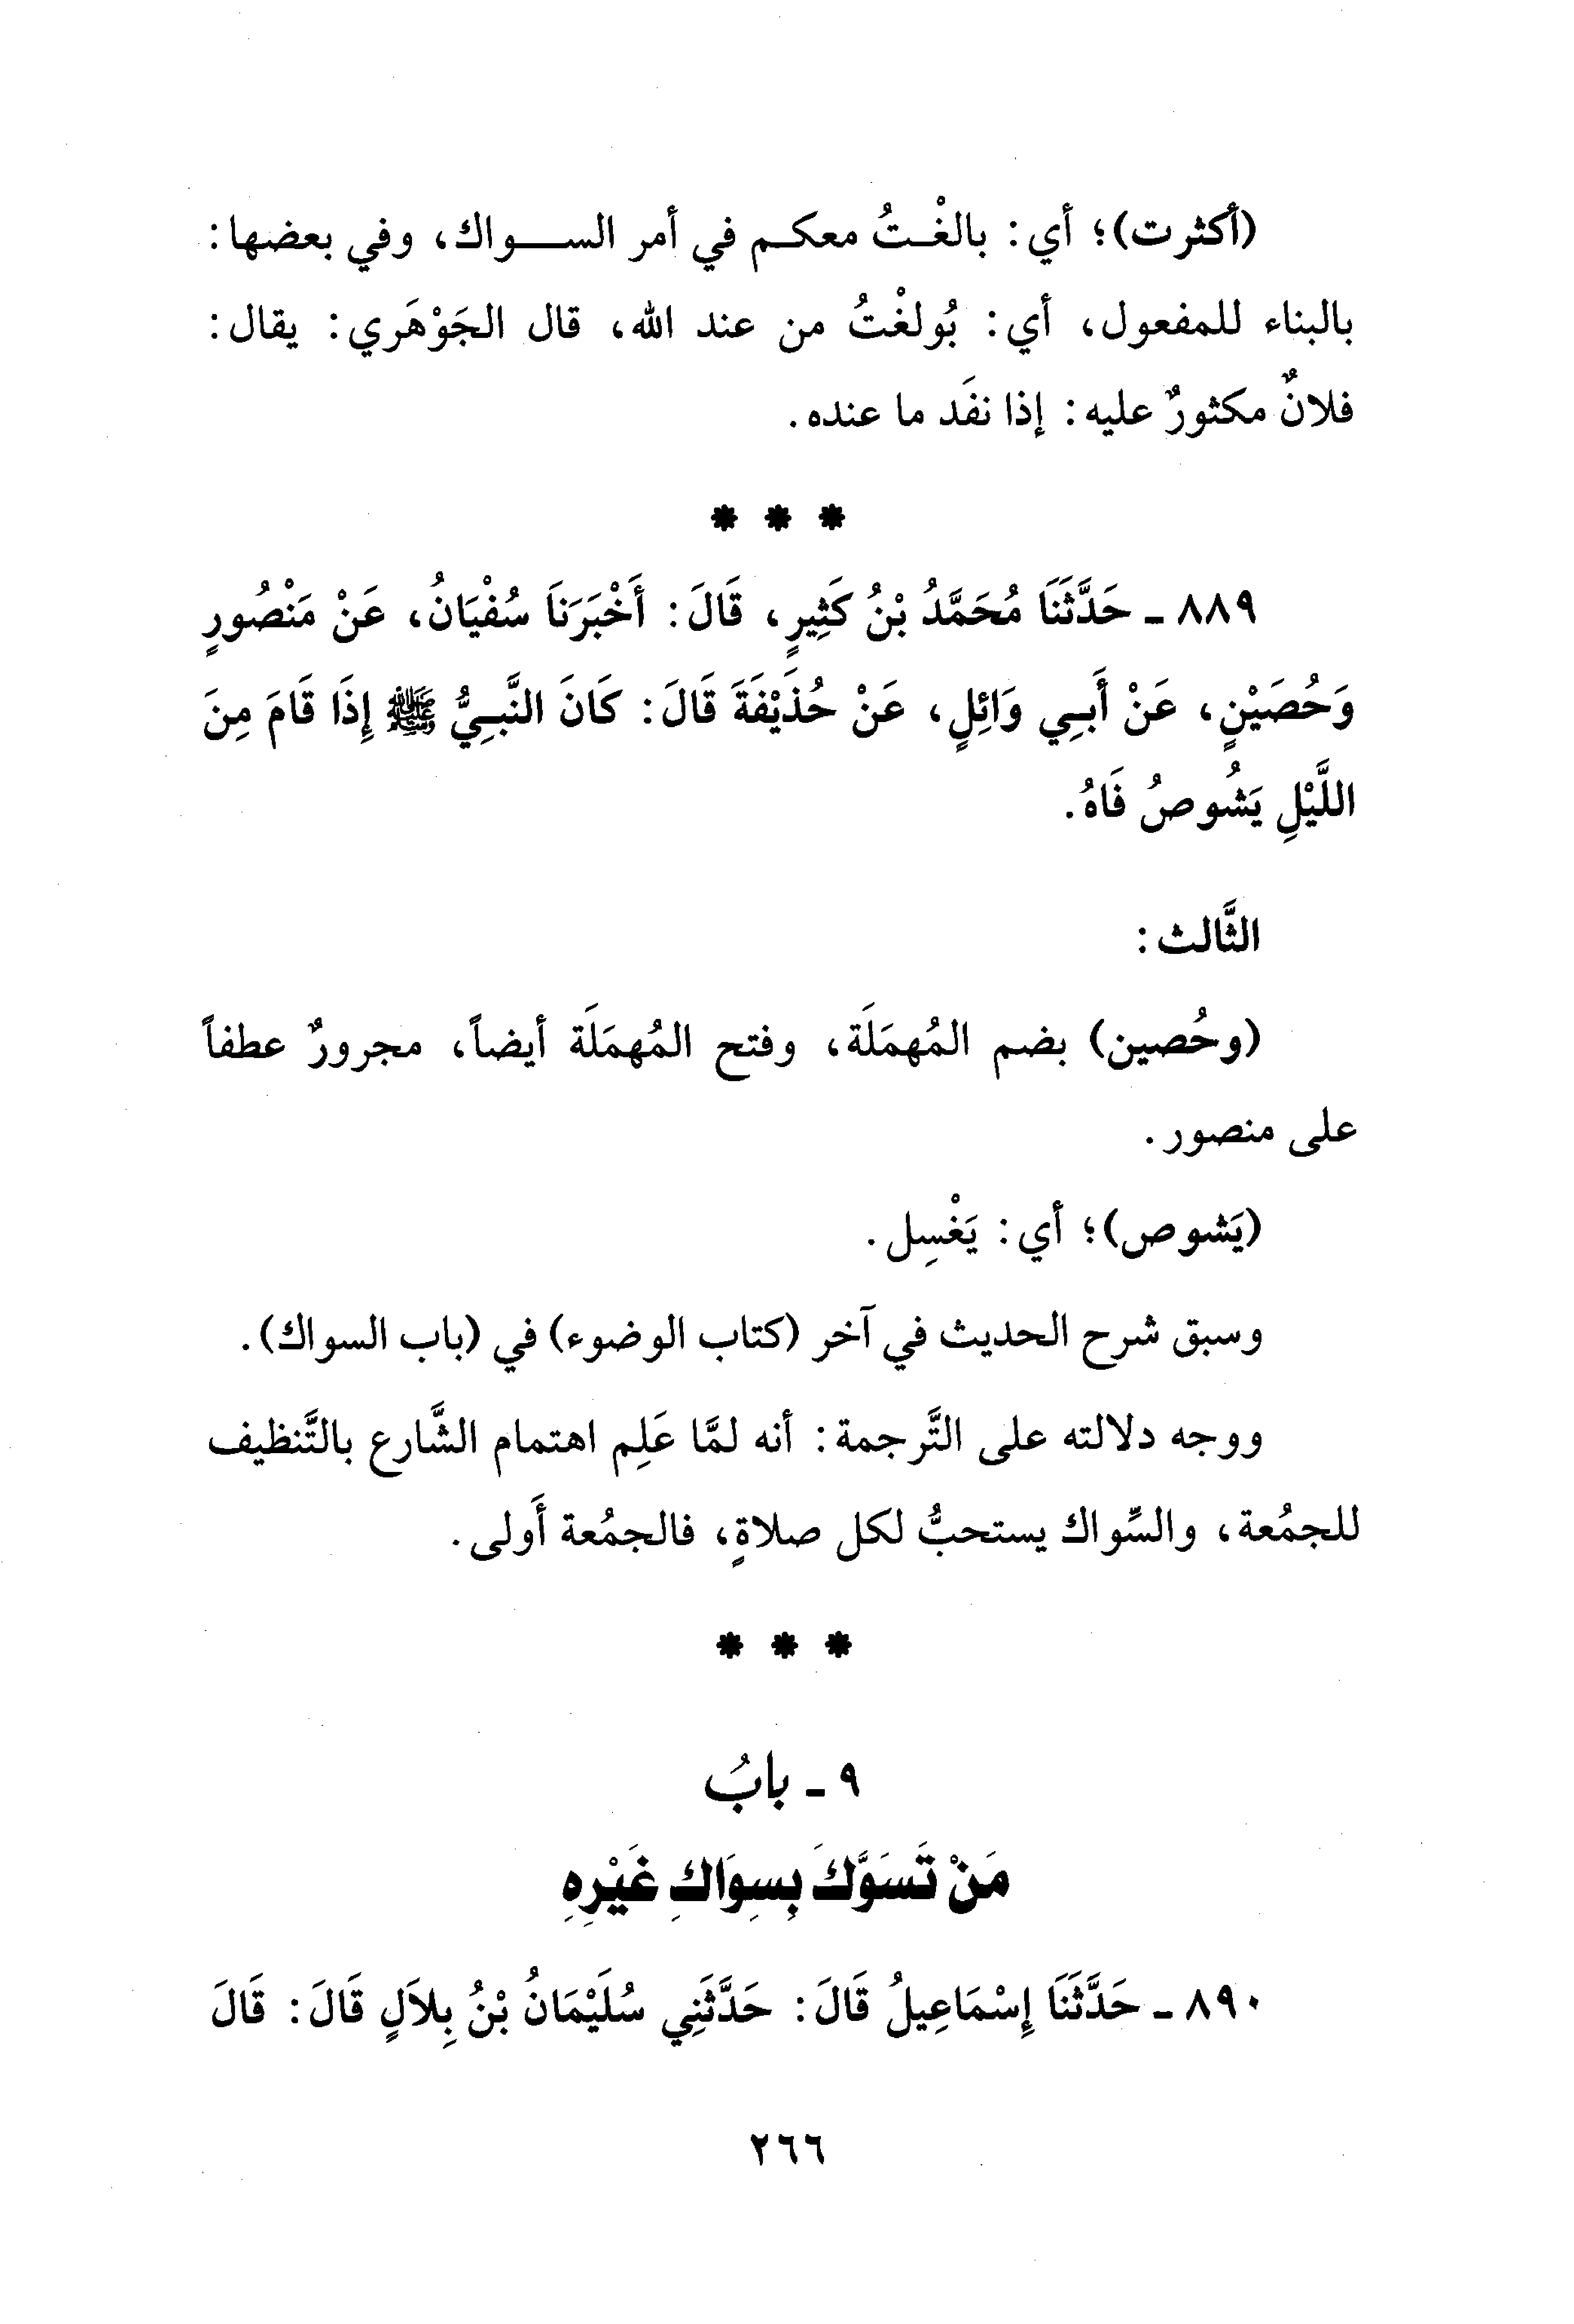 (أكثرت)؛ أي: بالغْتُ معكم في أمر السواك، وفي بعضها:
بالبناء للمفعول، أي: بُولغْتُ من عند الله، قال الجَوْهَري: يقال:
فلانٌ مكثورٌ عليه: إذا نفَد ما عنده.
* * *
٨٨٩ ـ حَدَّثَنَا مُحَمَّدُ بْنُ كَثِيرٍ، قَالَ: أَخْبَرَناَ سُفْيَانُ، عَنْ مَنْصُورٍ
وَحُصَيْنٍ، عَنْ أَبِي وَائِلٍ، عَنْ حُذَيْفَةَ قَالَ: كَانَ النَّبِيُّ ﷺ إِذَا قَامَ مِنَ
اللَّيْلِ يَشُوصُ فَاهُ.
الثَّالث:
(وحُصين) بضم المُهمَلَة، وفتح المُهمَلَة أيضاً، مجرورٌ عطفاً
على منصور.
(يَشوص)؛ أي: يَغْسِل.
وسبق شرح الحديث في آخر (كتاب الوضوء) في (باب السواك).
ووجه دلالته على التَّرجمة: أنه لمَّا عَلِم اهتمام الشَّارع بالتَّنظيف
للجمُعة، والسِّواك يستحبُّ لكل صلاةٍ، فالجمُعة أَولى.
* * *
٩ ـ بابُ
مَنْ تَسَوَّكَ بِسِوَاكِ غَيْرِهِ
٨٩٠ ـ حَدَّثَنَا إِسْمَاعِيلُ قَالَ: حَدَّثَنِي سُلَيْمَانُ بْنُ بِلاَلٍ قَالَ: قَالَ
٢٦٦